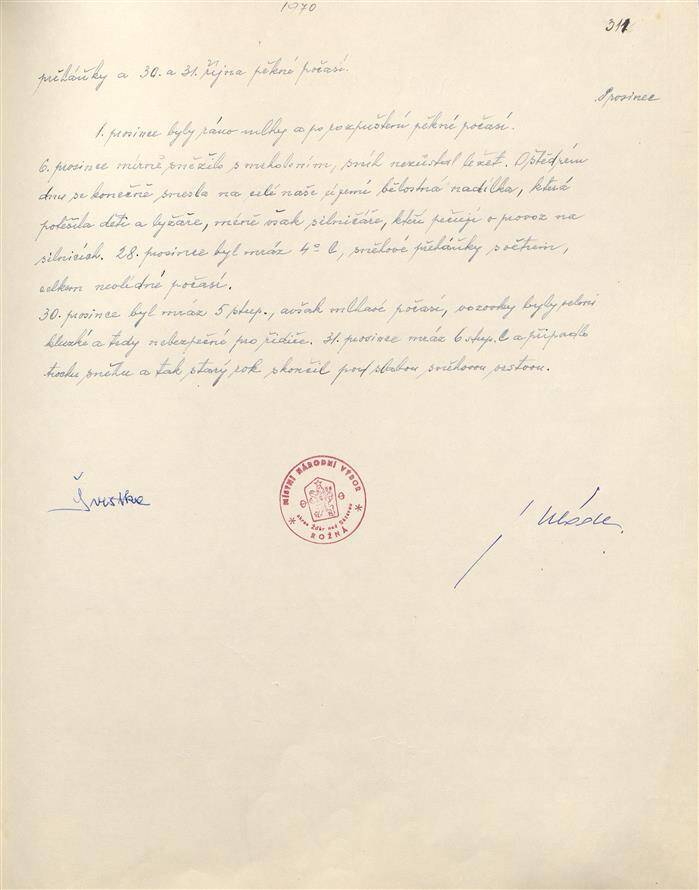 1970
311
přeháňky a 30. a 31. října pěkné počasí.
Prosinec
1. prosince byly ráno mlhy a po rozpuštění pěkné počasí.
6. prosince mírně sněžilo s mrholením, sníh nezůstal ležet. O štědrém
dnu se konečně snesla na celé naše území bělostná nadílka, která
potěšila děti a lyžaře, méně však silničáře, kteří pečují o provoz na
silnicích. 28. prosince byl mráz 4° C, sněhové přeháňky s větrem,
celkem nevlídné počasí.
30. prosince byl mráz 5 stup., avšak mlhavé počasí, vozovky byly velmi
kluzké a tedy nebezpečné pro řidiče. 31. prosince mráz 6 stup. C a připadlo
trochu sněhu a tak starý rok skončil pod slabou sněhovou vrstvou.
MÍSTNÍ NÁRODNÍ VÝBOR
okres Žďár nad Sázavou
ROŽNÁ